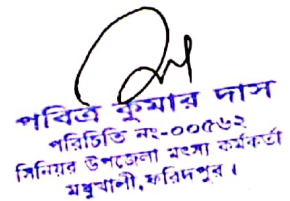 পবিত্র কুমার দাস
পরিচিতি নং-০০৫৬২
সিনিয়র উপজেলা মৎস্য কর্মকর্তা
মধুখালী, ফরিদপুর।